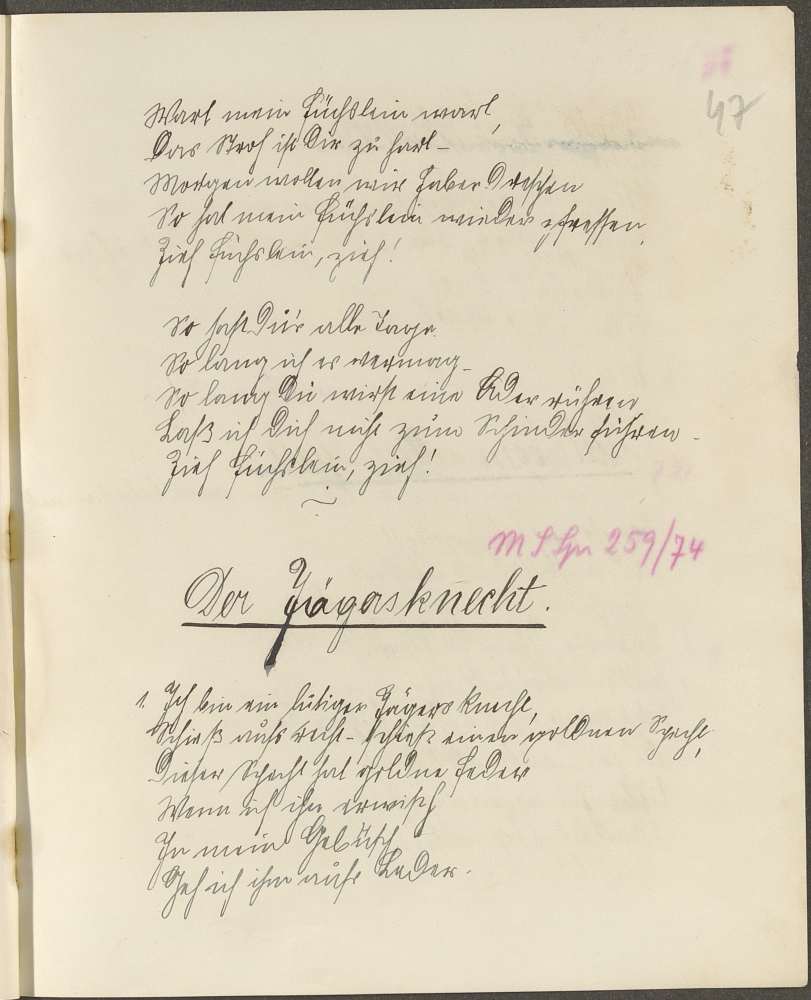 47
Wart mein Füchslein wart,
Das Stroh ist Dir zu hart -
Morgen wollen wir Haber Dreschen
So hat mein Füchslein wieder z'fressen,
Zieh Füchslein, zieh!
So hast Du's alle Tage
So lang ich es vermag -
So lang Du wirst eine Ader rühren
Laß ich Dich nicht zum Schinder führen -
Zieh Füchslein, zieh!
259/74
Der Jägersknecht.
1. Ich bin ein lustiger Jägersknecht,
Schieß aufs recht - schieß einen goldnen Specht,
Dieser Specht hat goldne Feder
Wenn ich ihn erwisch
In mein Gebüsch
Geh ich ihm aufs Leder.